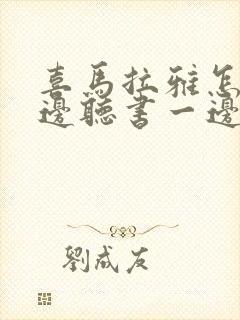 喜馬拉雅怎
邊聽書一邊
劉成友